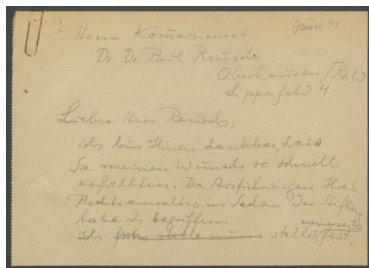 Juni 41
Herrn Kommerzienrat
Dr. Dr. Paul Reusch
Oberhausen / Rhld
Lipperfeld 4
Lieber Herr Reusch,
ich bin Ihnen dankbar, dass
Sie meinen Wunsch so schnell
erfüllten. Die Ausführungen Ihres
Rechtsanwaltes in Sachen der Stiftung
habe ich begriffen.
meinerseits
Ich stelle fest,